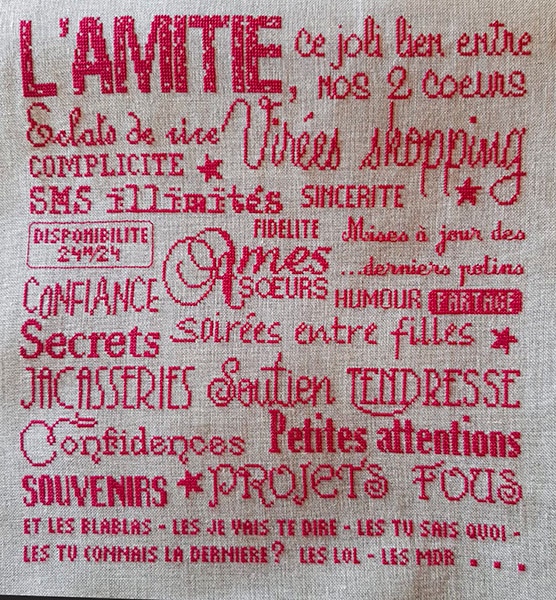 L'AMITIE, ce joli lien entre
nos 2 coeurs
Eclats de rire Virées shopping
COMPLICITE
SMS illimités SINCERITE
DISPONIBILITE
24H/24
FIDELITE Mises à jour des
...derniers potins
Ames
SOEURS
CONFIANCE HUMOUR PARTAGE
Secrets soirées entre filles
JACASSERIES Soutien TENDRESSE
Confidences Petites attentions
SOUVENIRS PROJETS FOUS
ET LES BLABLAS - LES JE VAIS TE DIRE - LES TU SAIS QUOI -
LES TU CONNAIS LA DERNIERE? LES LOL - LES MDR ...